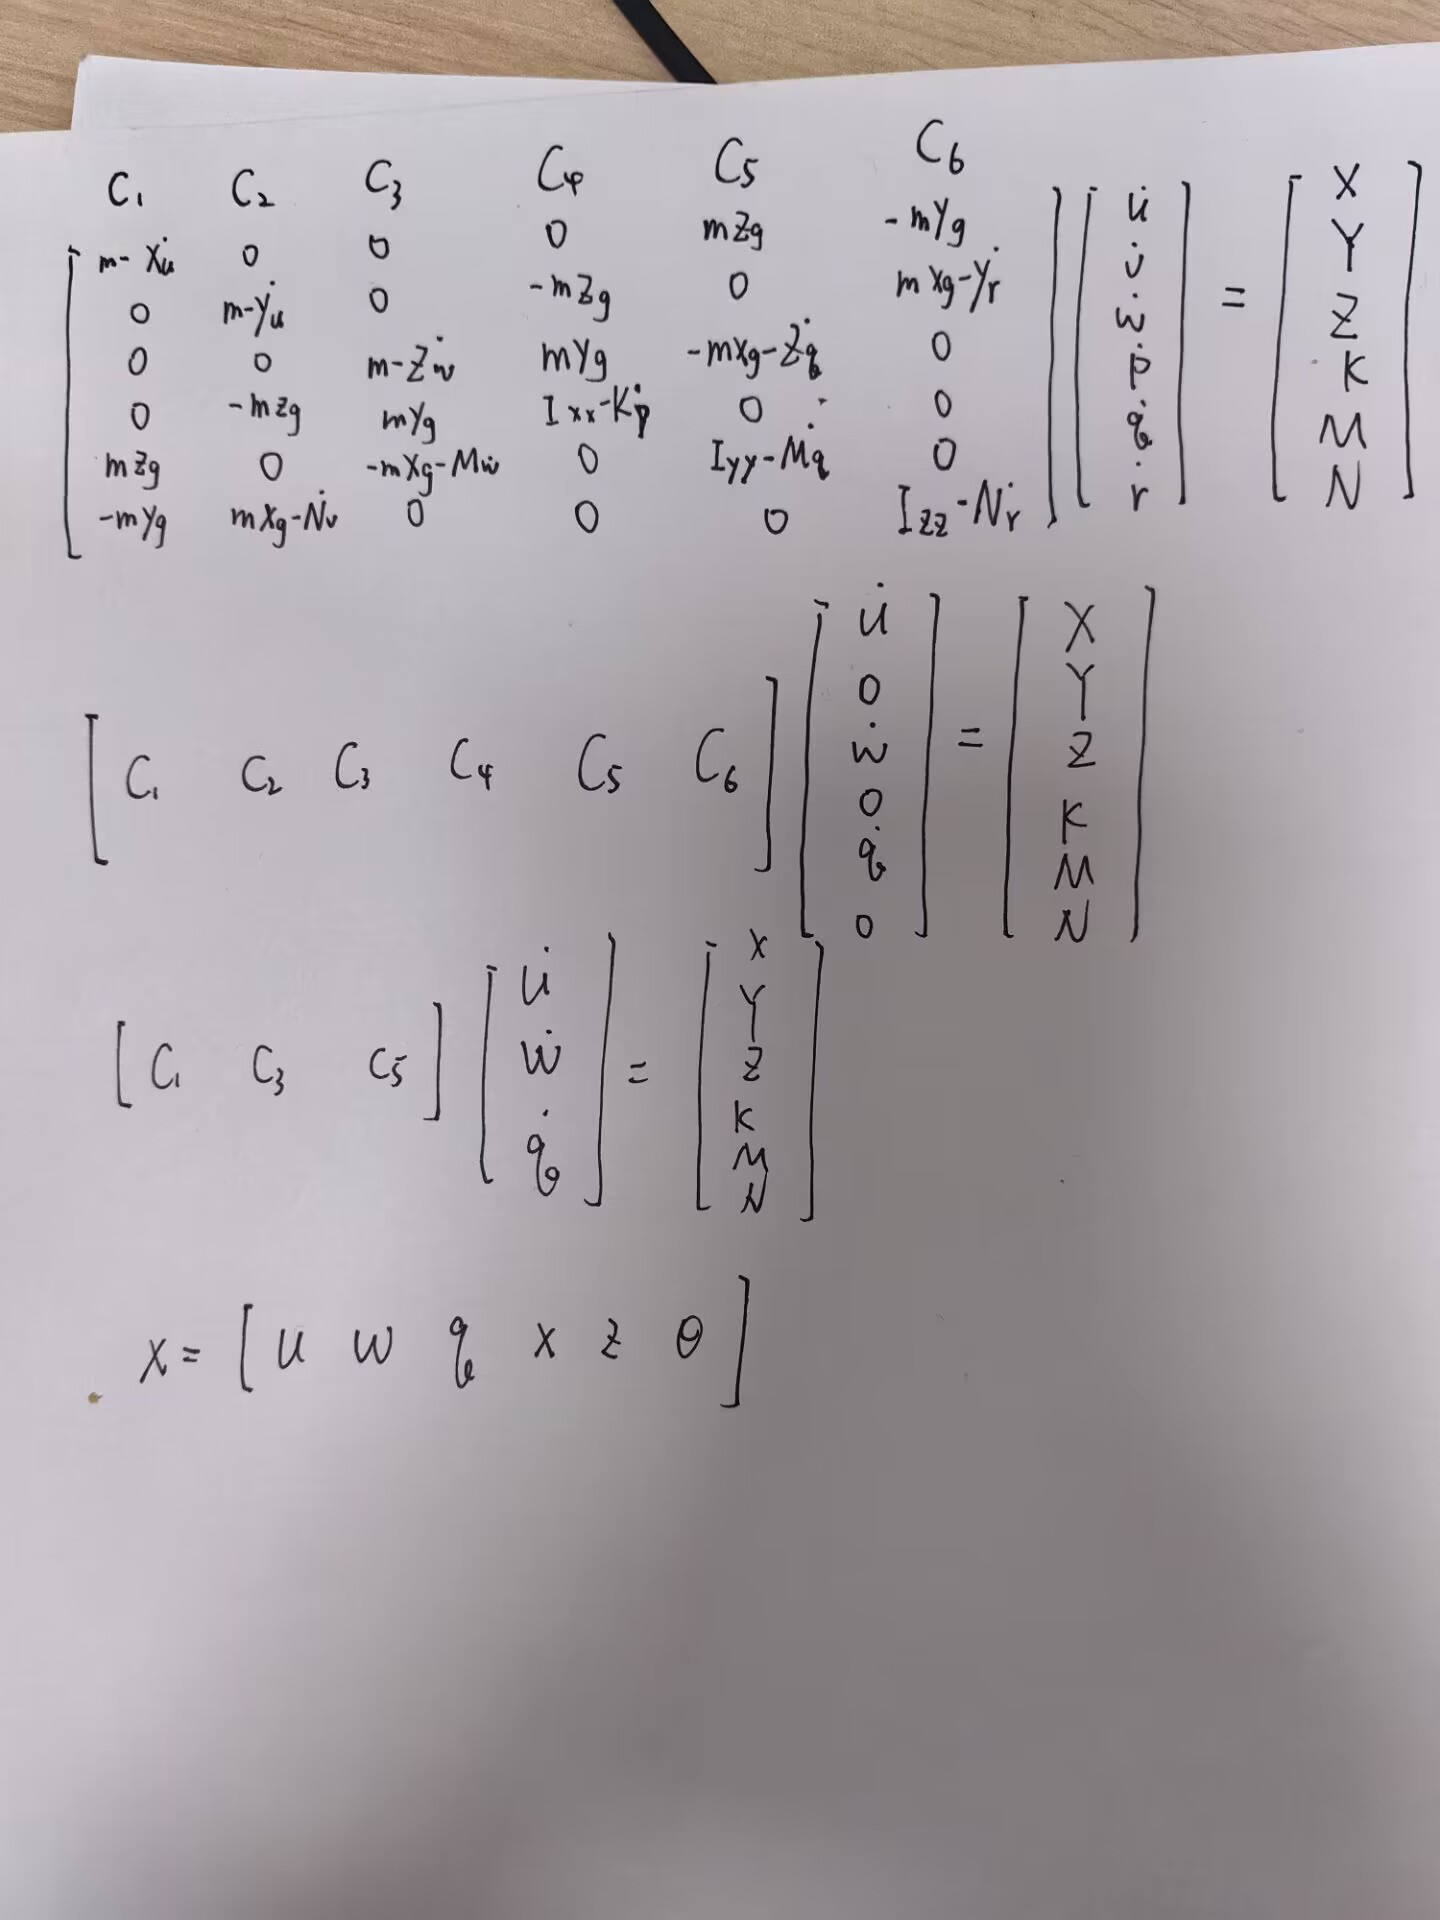 C₁ C₂ C₃ C₄ C₅ C₆
[ m-Xu̇ 0 0 0 mZg -mYg ] [ u̇ ] = [ X ]
0 m-Yu̇ 0 -mZg 0 mXg-Yṙ v̇ Y
0 0 m-Zẇ mYg -mXg-Zq̇ 0 ẇ Z
0 -mZg mYg Ixx-Kṗ 0 0 ṗ K
mZg 0 -mXg-Mẇ 0 Iyy-Mq̇ 0 q̇ M
-mYg mXg-Nv̇ 0 0 0 Izz-Nṙ ṙ N
[ C₁ C₂ C₃ C₄ C₅ C₆ ] [ u̇ 0 ẇ 0 q̇ 0 ] = [ X Y Z K M N ]
[ C₁ C₃ C₅ ] [ u̇ ẇ q̇ ] = [ X Y Z K M N ]
x = [ u w q x z θ ]